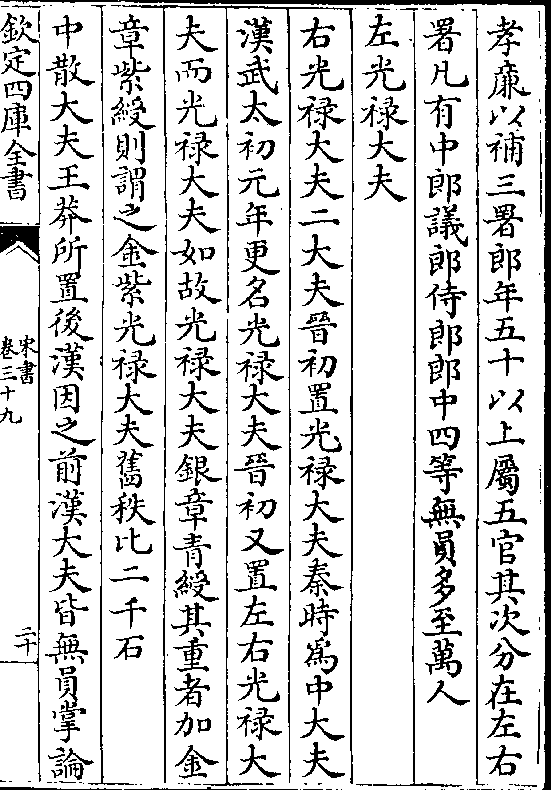 孝廉以補三署郎年五十以上屬五官其次分在左右
署凡有中郎議郎侍郎郎中四等無員多至萬人
左光禄大夫
右光禄大夫二大夫晉初置光禄大夫秦時爲中大夫
漢武太初元年更名光禄大夫晉初又置左右光禄大
夫而光禄大夫如故光禄大夫銀章青綬其重者加金
章紫綬則謂之金紫光禄大夫舊秩比二千石
中散大夫王莽所置後漢因之前漢大夫皆無員掌論
欽定四庫全書
宋書
卷三十九
二十